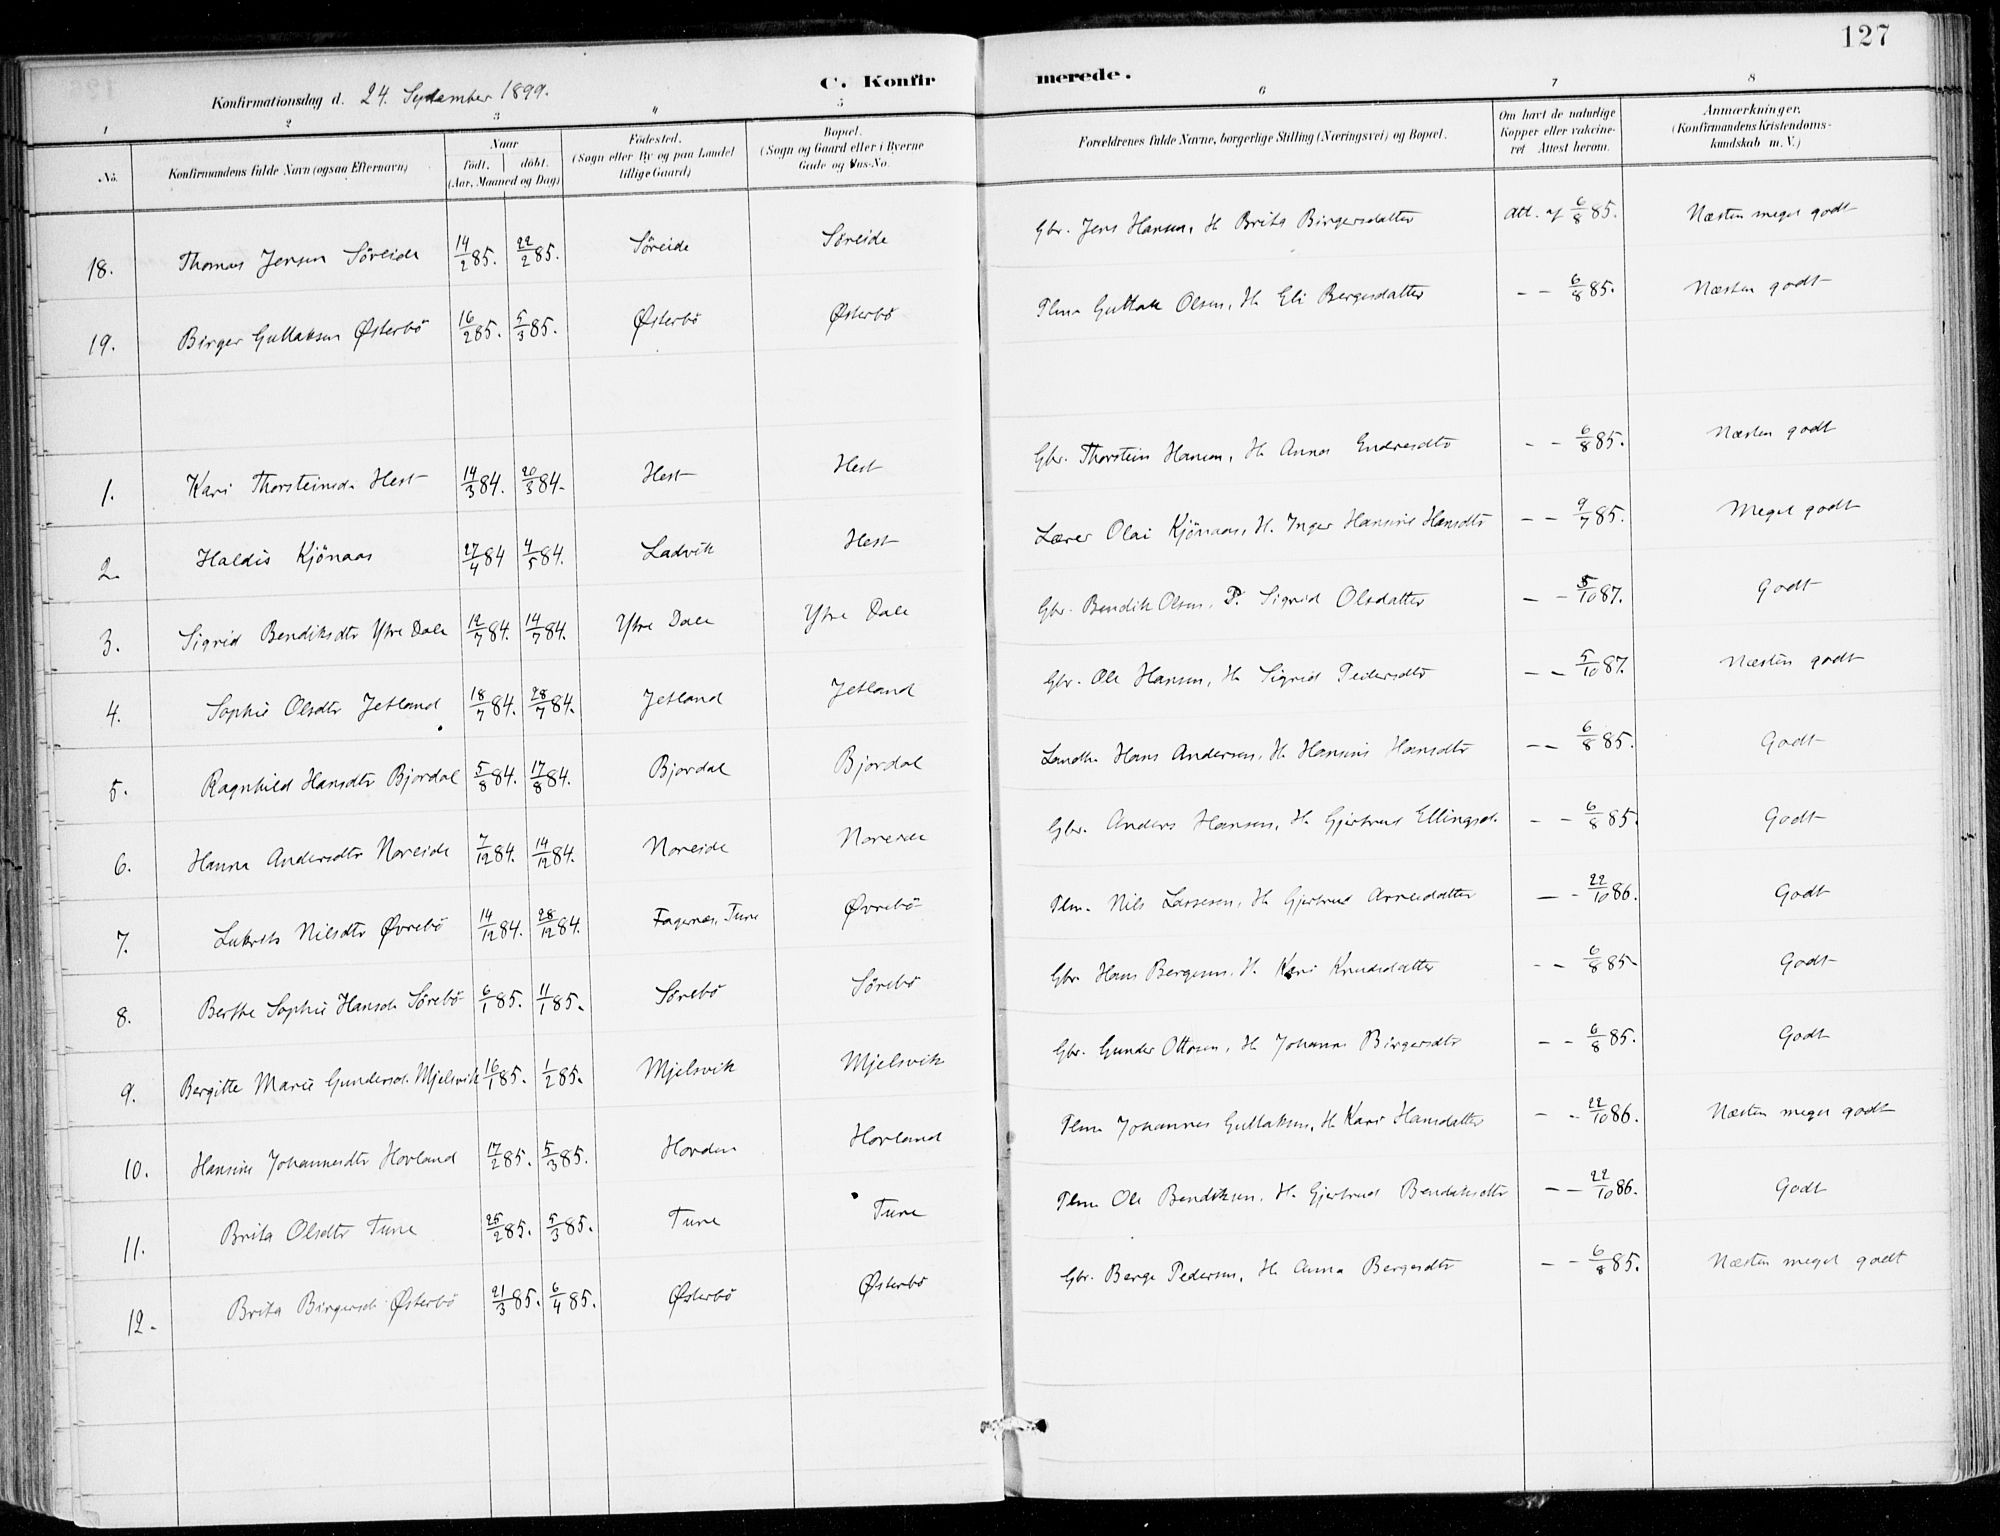 127
C. Konfirmerede.
Konfirmationsdag d. 24. September 1899.
1 2 3 4 5 6 7 8
No. Konfirmandens fulde Navn (ogsaa Efternavn) Naar født. døbt. (Aar, Maaned og Dag) Fødested. (Sogn eller By og paa Landet tillige Gaard) Bopæl. (Sogn og Gaard eller i Byerne Gade og Hus-No. Forældrenes fulde Navne, borgerlige Stilling (Næringsvei) og Bopæl. Om havt de naturlige Kopper eller vakcineret Attest herom. Anmærkninger. (Konfirmandens Kristendomskundskab m. V.)
18. Thomas Jensen Söreide 14/2 85. 22/2 85. Söreide Söreide Gbr. Jens Hansen, H. Brita Birgersdatter Att. af 6/8 85. Næsten meget godt
19. Birger Gullaksen Østerbö 16/2 85. 5/3 85. Østerbö Østerbö Plm. Gullak Olsen, H. Eli Bergesdatter - - 6/8 85. Næsten godt
1. Kari Thorsteinsd. Hest 14/3 84. 20/3 84. Hest Hest Gbr. Thorstein Hansen, H. Anna Endresdtr - - 6/8 85. Næsten godt
2. Haldis Kjönaas 27/4 84 4/5 84. Ladvik Hest Lærer Olai Kjönaas, H. Inger Hansine Hansdtr - - 9/7 85. Meget godt
3. Sigrid Bendiksdtr Ytre Dale 12/7 84. 14/7 84. Ytre Dale Ytre Dale Gbr. Bendik Olsen, P. Sigrid Olsdatter - - 5/10 87. Godt
4. Sophie Olsdtr Jetland 18/7 84. 28/7 84. Jetland Jetland Gbr. Ole Hansen, H. Sigrid Pedersdtr - - 5/10 87. Næsten godt
5. Ragnhild Hansdtr Bjordal 5/8 84. 17/8 84. Bjordal Bjordal Landh. Hans Andersen, H. Hansine Hansdtr - - 6/8 85. Godt
6. Hanna Andersdtr Noreide 7/12 84. 14/12 84. Noreide Noreide Gbr. Anders Hansen, H. Gjertrud Ellingsd. - - 6/8 85. Godt
7. Lukris Nilsdtr Øvrebö 14/12 84. 28/12 84. Fagernes, Tune Øvrebö Plm. Nils Larsen, H. Gjertrud Arnesdatter - - 22/10 86. Godt
8. Berthe Sophie Hansd. Sörebö 6/1 85. 11/1 85. Sörebö Sörebö Gbr. Hans Bergesen, H. Kari Knudsdatter - - 6/8 85. Godt
9. Bergitte Marie Gundersd. Mjelsvik 16/1 85. 1/2 85. Mjelsvik Mjelsvik Gbr. Gunder Ottosen, H. Johanne Birgersdtr - - 6/8 85. Godt
10. Hansine Johannesdtr Hovland 17/2 85. 5/3 85. Horden Hovland Plm. Johannes Gullaksen, H. Kari Hansdatter - - 22/10 86. Næsten meget godt
11. Brita Olsdtr Tune 25/2 85. 5/3 85. Tune Tune Plm. Ole Bendiksen, H. Gjertrud Bendiksdtr - - 22/10 86. Godt
12. Brita Birgersd. Østerbö 21/3 85. 6/4 85. Østerbö Østerbö Gbr. Berge Pedersen, H. Anna Bergesdtr - - 6/8 85. Næsten meget godt